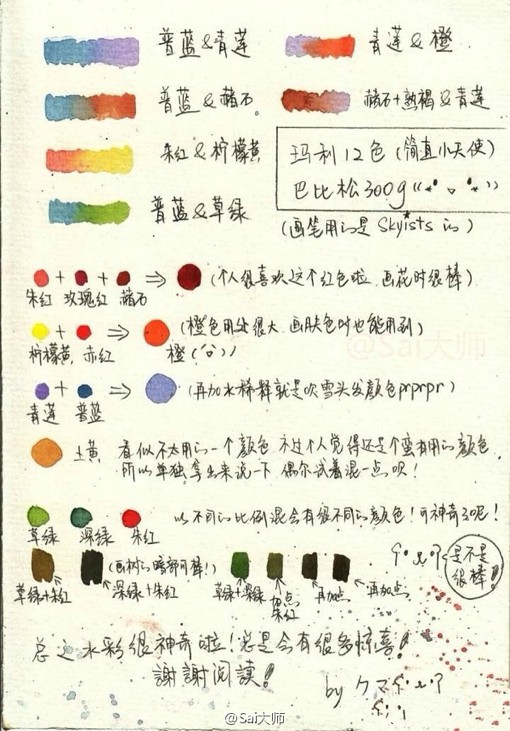 普蓝&青莲
青莲&橙
普蓝&赭石
赭石+熟褐&青莲
朱红&柠檬黄
普蓝&草绿
玛利12色(简直小天使)
巴比松300g
(画笔用的是Skyists的)
朱红 + 玫瑰红 + 赭石 ⇒ (个人很喜欢这个红色啦 画花时很棒)
柠檬黄 + 赤红 ⇒ 橙 (橙色用处很大.画肤色时也能用到)
青莲 + 普蓝 ⇒ (再加水稀释就是吹雪头发颜色prprpr)
土黄 看似不太用的一个颜色 不过个人觉得还是个蛮有用的颜色.
所以单独拿出来说一下 偶尔试着混一点呗!
草绿 深绿 朱红 以不同的比例混会有很不同的颜色!可神奇了呢!
草绿+朱红
(画树的暗部可棒!)
深绿+朱红
草绿+深绿
加点朱红
再加点
再加点.
是不是
很棒!
总之水彩很神奇啦!总是会有很多惊喜!
謝謝阅读!
by クマ
@Sai大师
@Sai大师